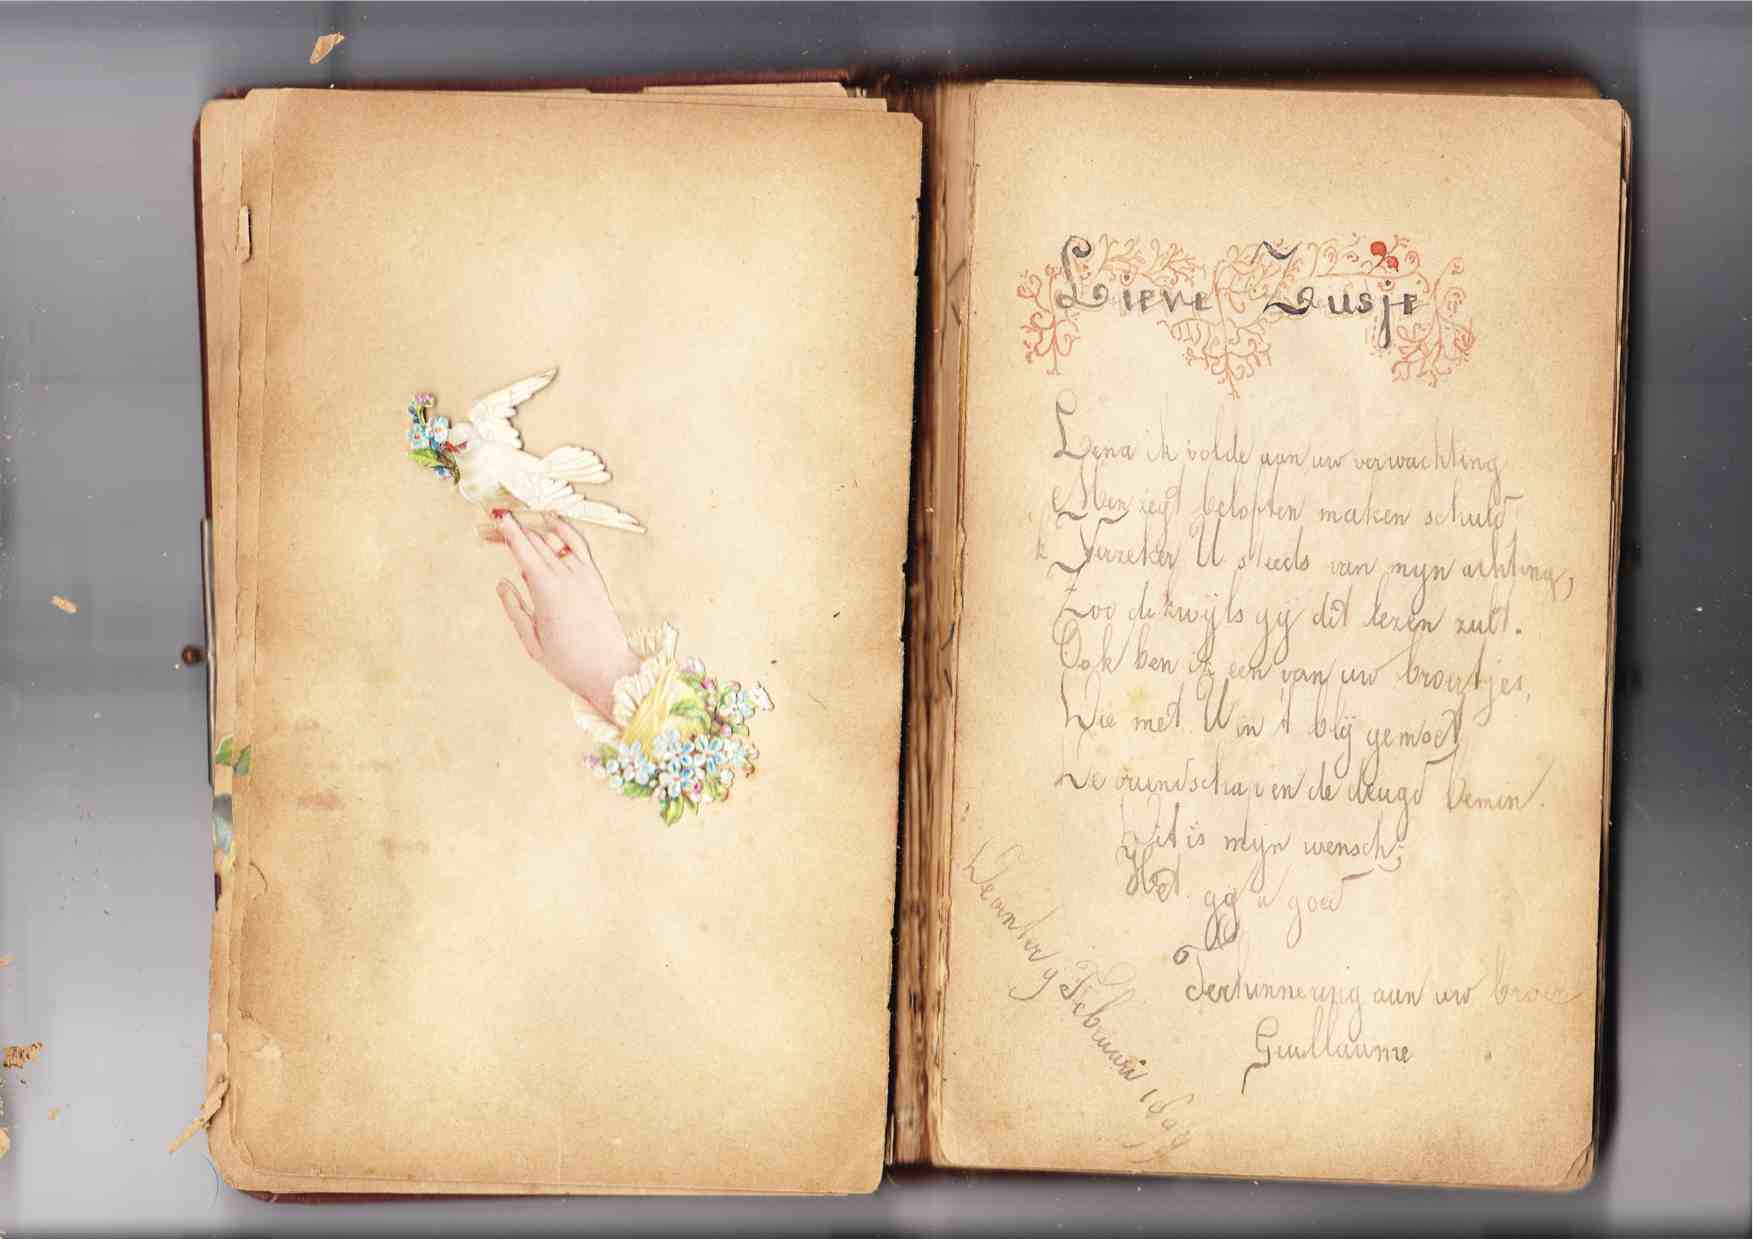 Lieve Zusje
Lena ik volde aan uw verwachting
Men zegt beloften maken schuld
k Verzeker U steeds van mijn achting,
Zoo dikwijls gij dit lezen zult.
Ook ben ik een van uw broertjes,
Die met U in 't blij gemoet
De vriendschap en de deugd
Dit is mijn wensch;
Het ga u goed
Terhinnering aan uw broer
Guillaume
9 Februari 1899